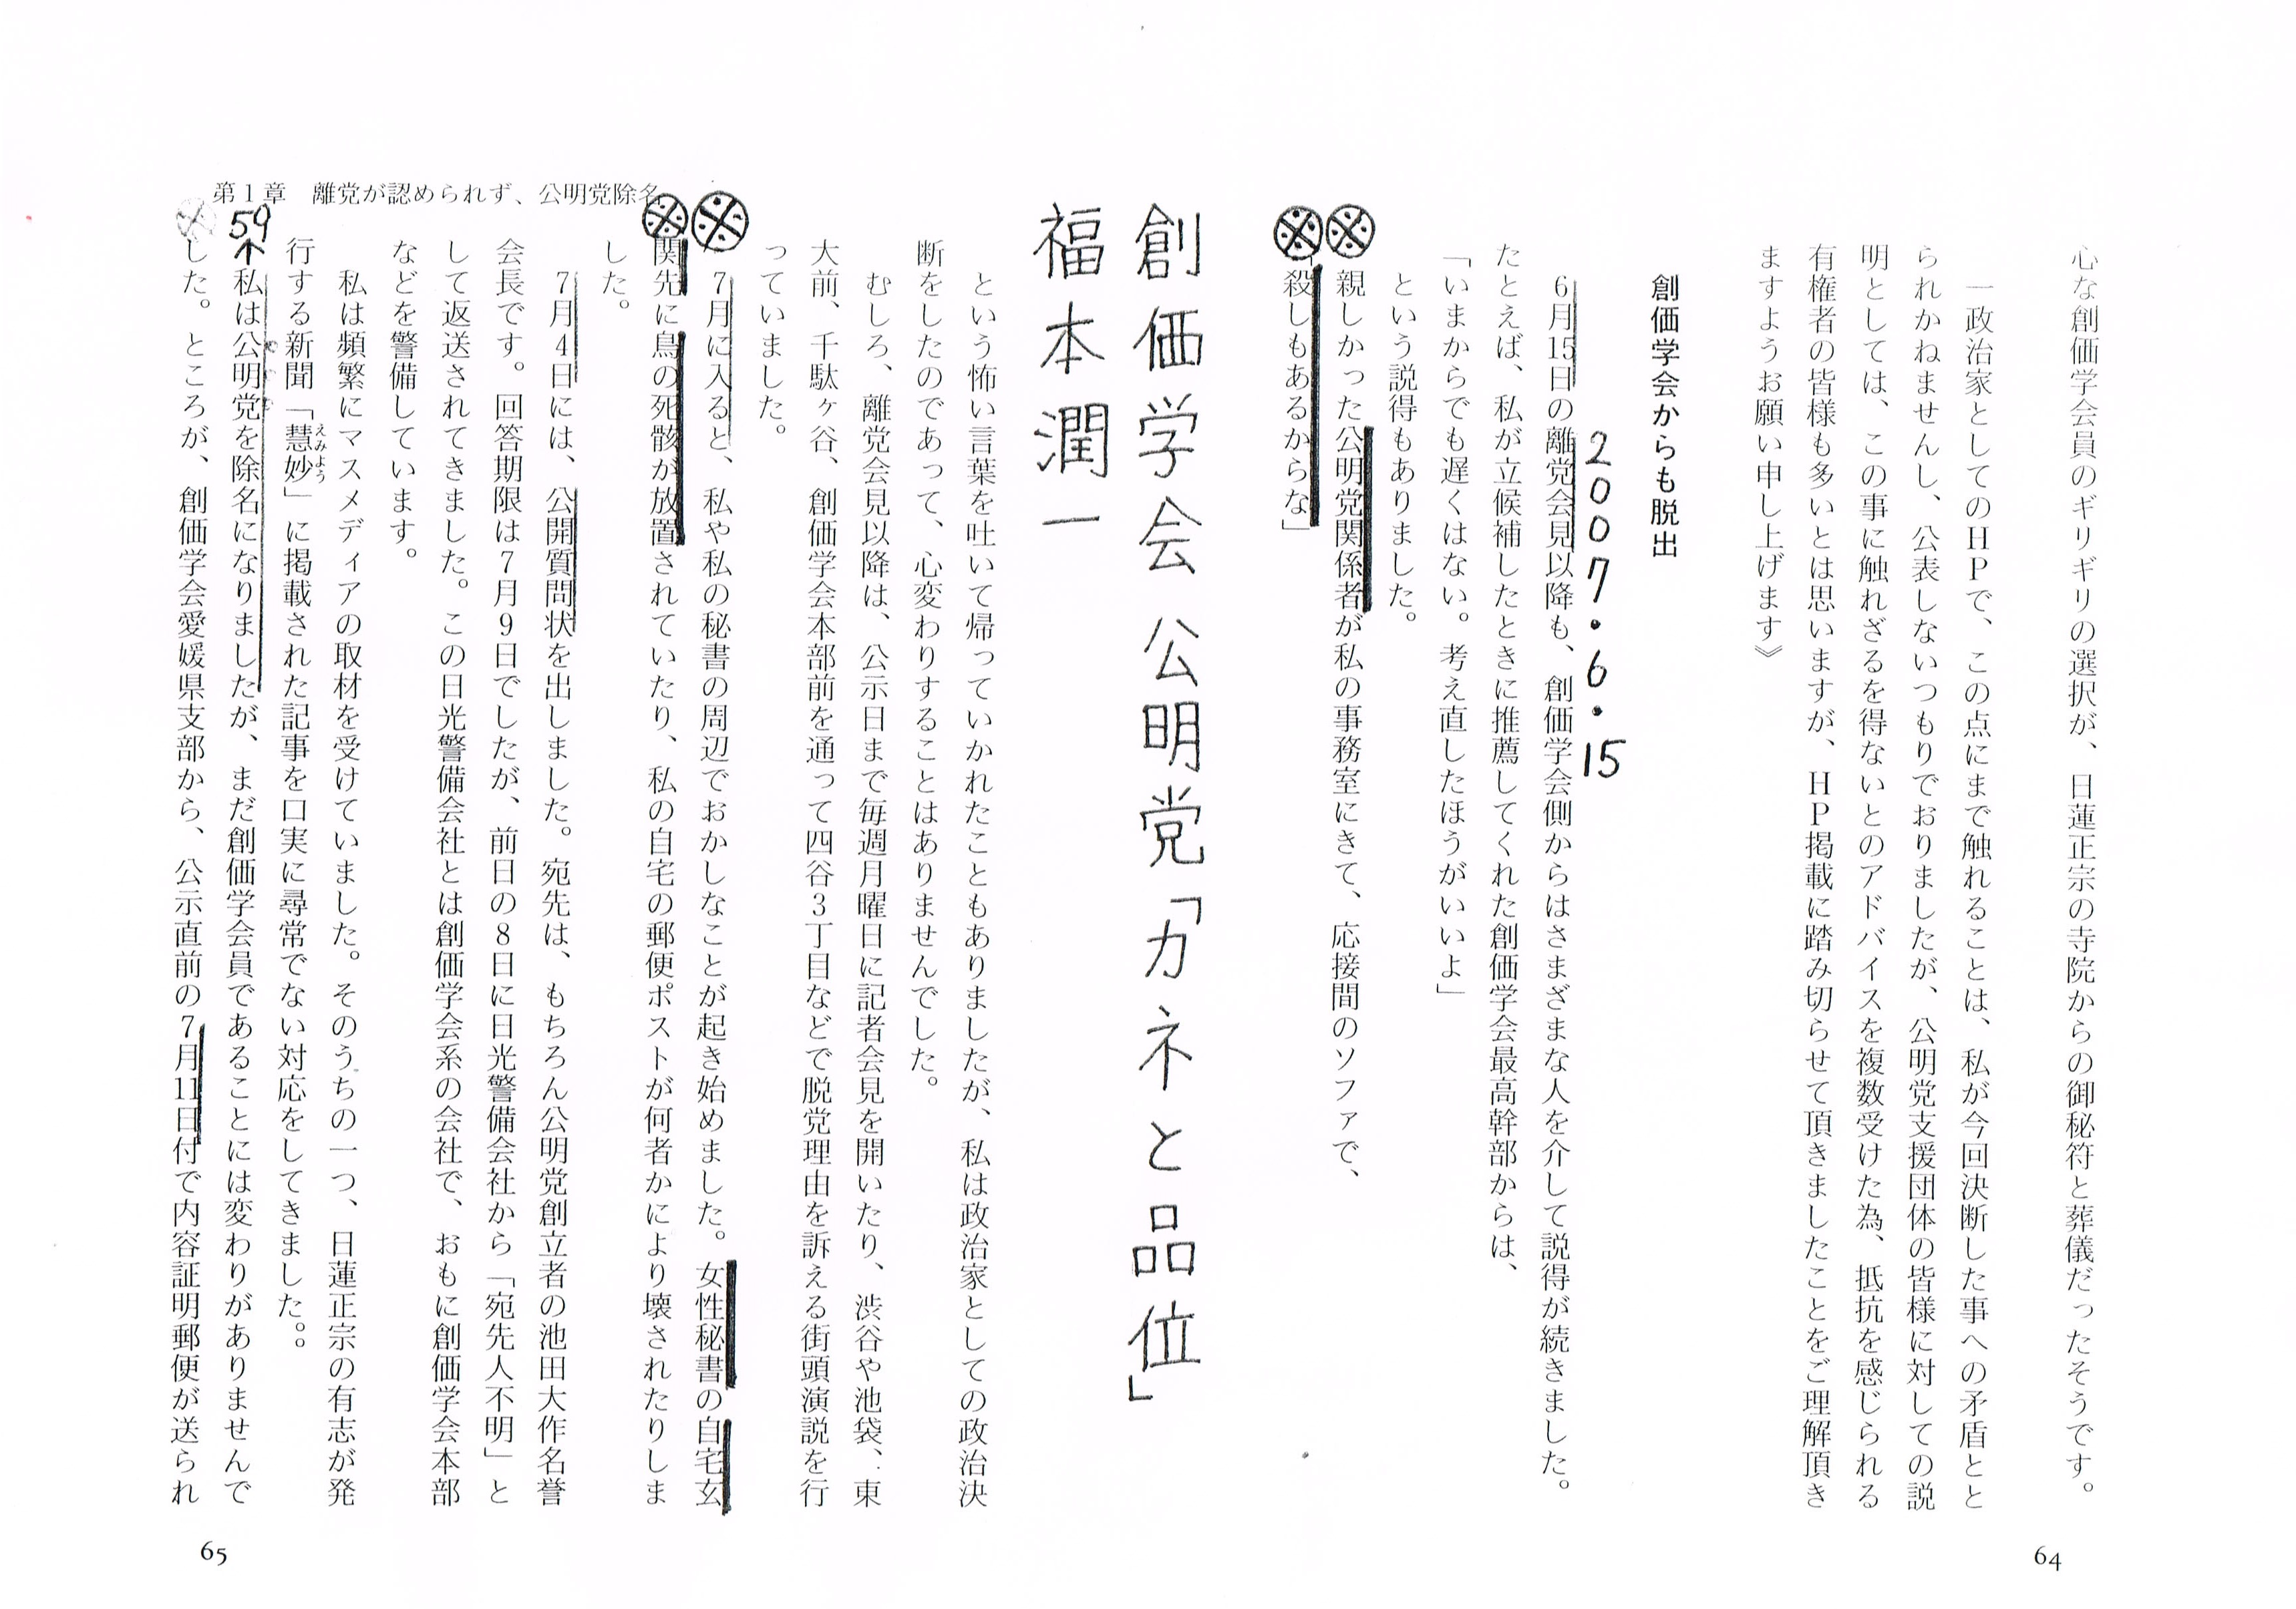 心な創価学会員のギリギリの選択が、日蓮正宗の寺院からの御秘符と葬儀だったそうです。
一政治家としてのHPで、この点にまで触れることは、私が今回決断した事への矛盾とと
られかねませんし、公表しないつもりでおりましたが、公明党支援団体の皆様に対しての説
明としては、この事に触れざるを得ないとのアドバイスを複数受けた為、抵抗を感じられる
有権者の皆様も多いとは思いますが、HP掲載に踏み切らせて頂きましたことをご理解頂き
ますようお願い申し上げます》
創価学会からも脱出
2007・6・15
6月15日の離党会見以降も、創価学会側からはさまざまな人を介して説得が続きました。
たとえば、私が立候補したときに推薦してくれた創価学会最高幹部からは、
「いまからでも遅くはない。考え直したほうがいいよ」
という説得もありました。
親しかった公明党関係者が私の事務室にきて、応接間のソファで、
「殺しもあるからな」
創価学会 公明党「カネと品位」
福本潤一
という怖い言葉を吐いて帰っていかれたこともありましたが、私は政治家としての政治決
断をしたのであって、心変わりすることはありませんでした。
むしろ、離党会見以降は、公示日まで毎週月曜日に記者会見を開いたり、渋谷や池袋、東
大前、千駄ヶ谷、創価学会本部前を通って四谷3丁目などで脱党理由を訴える街頭演説を行
っていました。
7月に入ると、私や私の秘書の周辺でおかしなことが起き始めました。女性秘書の自宅玄
関先に鳥の死骸が放置されていたり、私の自宅の郵便ポストが何者かにより壊されたりしま
した。
7月4日には、公開質問状を出しました。宛先は、もちろん公明党創立者の池田大作名誉
会長です。回答期限は7月9日でしたが、前日の8日に日光警備会社から「宛先人不明」と
して返送されてきました。この日光警備会社とは創価学会系の会社で、おもに創価学会本部
などを警備しています。
私は頻繁にマスメディアの取材を受けていました。そのうちの一つ、日蓮正宗の有志が発
行する新聞「慧妙」に掲載された記事を口実に尋常でない対応をしてきました。。
えみよう
59
↑
私は公明党を除名になりましたが、まだ創価学会員であることには変わりがありませんで
した。ところが、創価学会愛媛県支部から、公示直前の7月11日付で内容証明郵便が送られ
第1章 離党が認められず、公明党除名
65
64